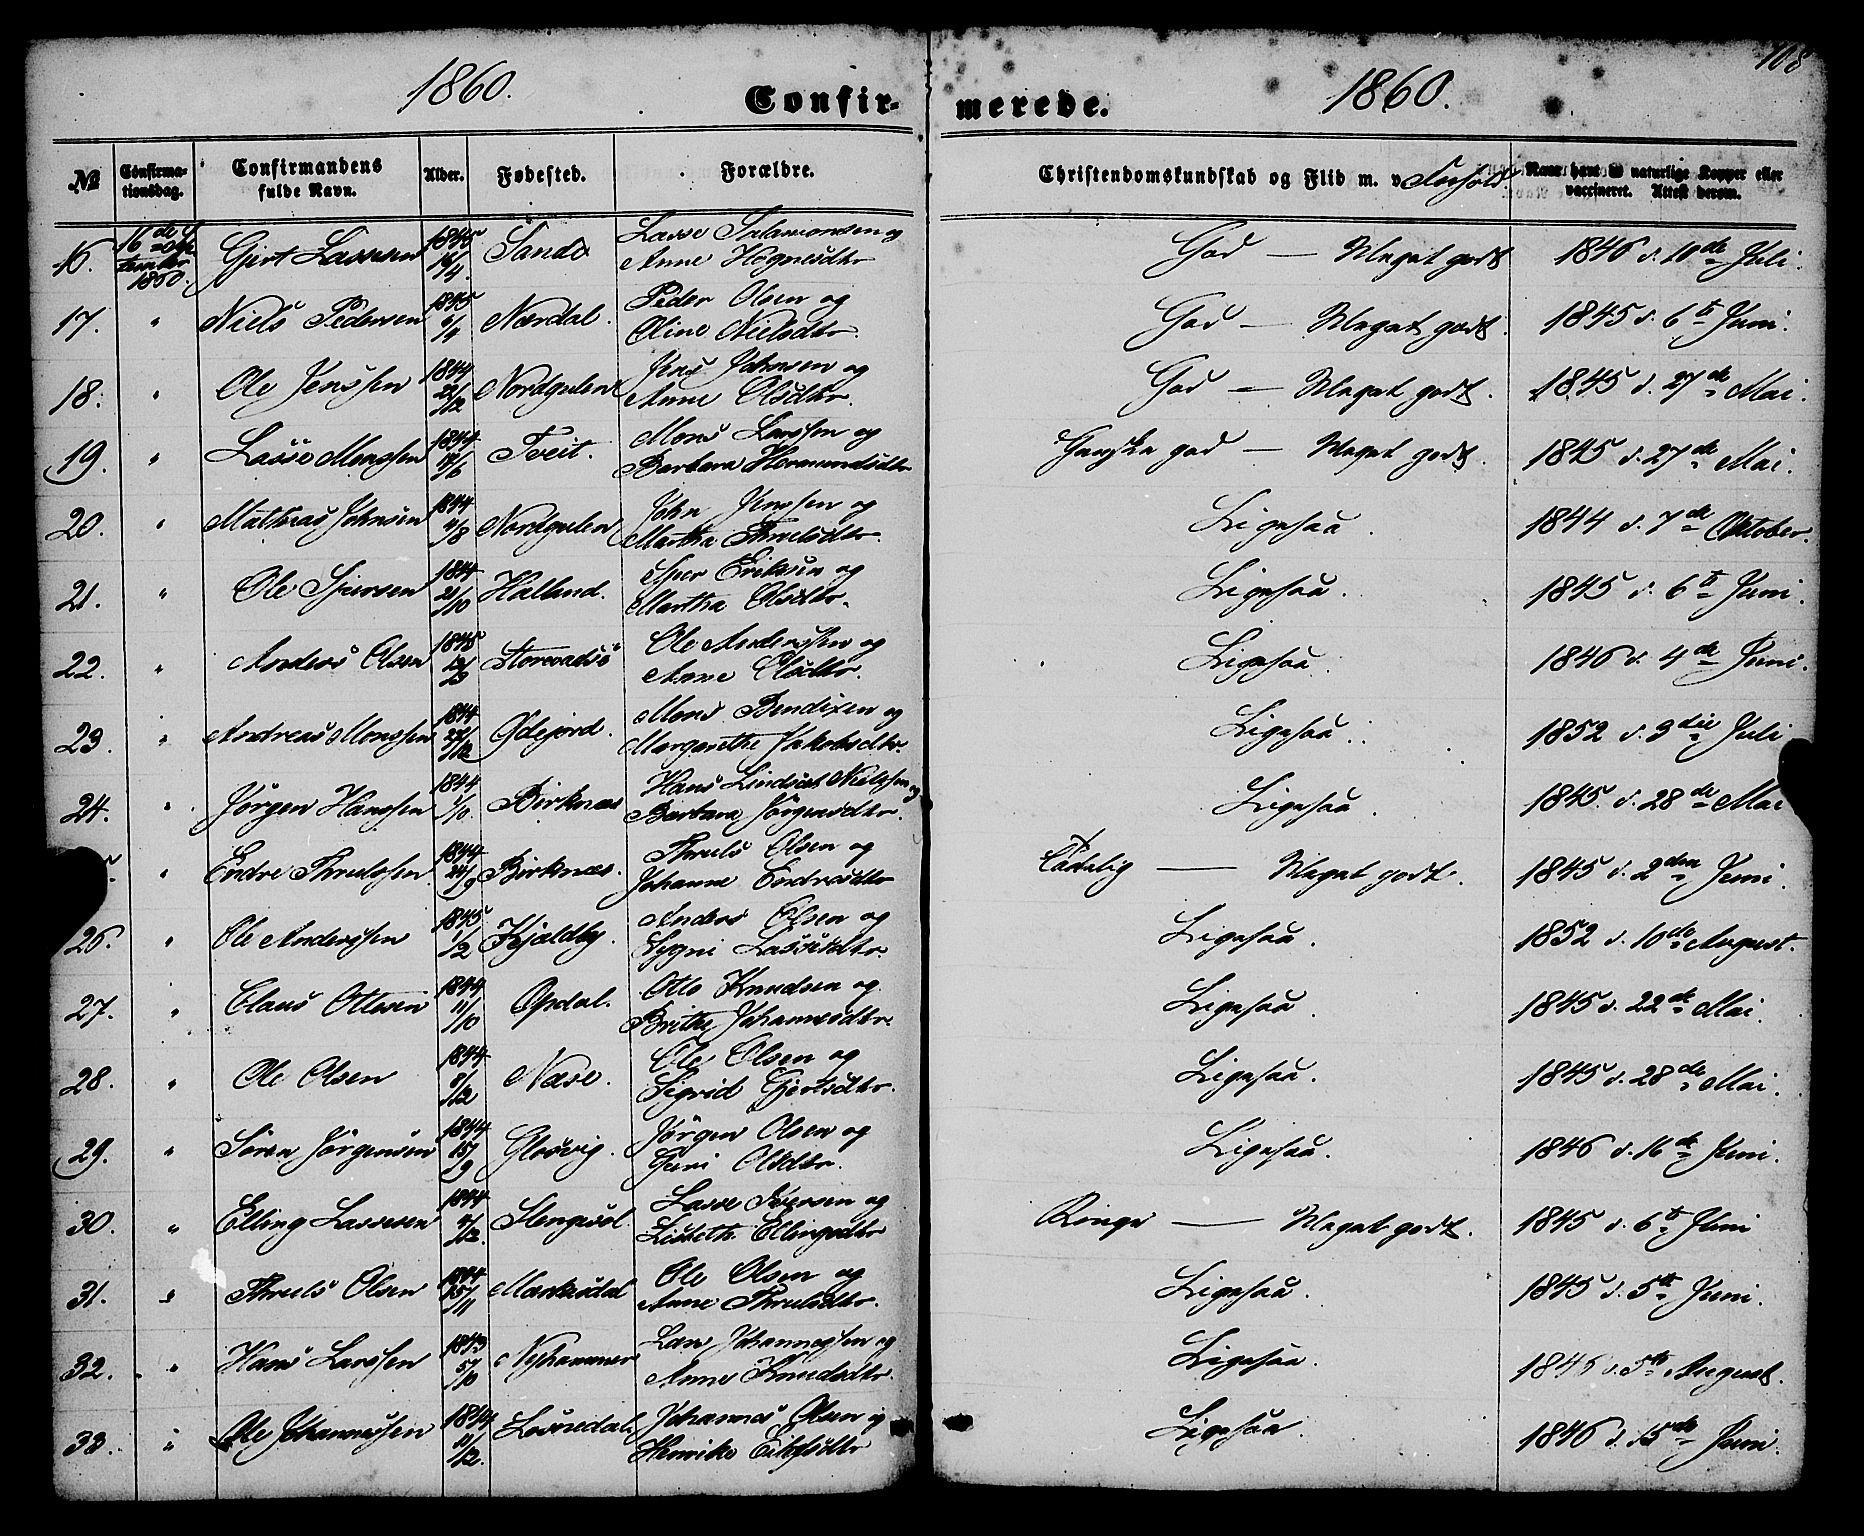 1860. Confirmerede. 1860. 108
№ Confirmationsdag. Confirmandens fulde Navn. Alder. Fødested. Forældre. Christendomskundskab og Flid m. v. Forhold Naar havt de naturlige Kopper eller vaccineret. Attest derom.
16. 16de September 1860. Gjert Lassesen 1845 Sande Lasse Salamonsen og Anne Hognesdtr God — Meget godt 1846 d. 10de Juli.
17. " Niels Pedersen 1845 Nordal. Peder Olsen og Oline Nielsdtr. God — Meget godt. 1845 d. 6te Juni.
18. " Ole Jenssen 1844 21/12 Nordgulen Jens Johnsen og Anne Olsdtr. God — Meget godt. 1845 d. 27de Mai.
19. " Lasse Monssen 1844 Tveit. Mons Larssen og Barbara Hermundsdtr Ganske god — Meget godt. 1845 d. 27de Mai.
20. " Mathias Johnsen 1844 4/8 Nordgulen John Jenssen og Martha Thruelsdtr. Ligesaa. 1844 d. 7de Oktober.
21. " Ole Sjursen 1844 21/10 Halland. Sjur Eriksen og Martha Olsdtr. Ligesaa. 1845 d. 6te Juni.
22. " Anders Olsen 1845 Ole Anderssen og Anne Olsdtr. Ligesaa. 1846 d. 4de Juni.
23. " Andreas Monssen 1844 Ødejord. Mons Bendixen og Margarethe Jakobsdtr. Ligesaa. 1852 d. 3die Juli
24. " Jørgen Hanssen 1844 1/10 Birknæs Hans Lindsæt Nielssen og Barbara Jørgensdtr. Ligesaa. 1845. d. 28de Mai
" Endre Thruelssen 1844 24/9 Birknæs. Thruels Olsen og Johanne Endresdtr Taalelig — Meget godt. 1845 d. 2den Juni.
26. " Ole Anderssen 1845 1/2 Kjeldby. Anders Olsen og Sygni Lassesdtr. Ligesaa. 1852 d. 10de August.
27. " Claus Ottesen 1844 11/10 Opdal. Otto Knudsen og Brithe Johannesdtr. Ligesaa. 1845 d. 22de Mai.
28. " Ole Olsen 1844 8/12 Næse. Ole Olsen og Sigrid Gjertsdtr. Ligesaa. 1845 d. 28de Mai.
29. " Søren Jørgensen 1844 15/9 Glosvig. Jørgen Olsen og Guri Olsdtr. Ligesaa. 1846 d. 16de Juni.
30. " Elling Lassesen 1844 4/12. Stengesøl Lasse Iversen og Lisbeth Ellingsdtr Ringe — Meget godt. 1845 d. 6te Juni
31. " Thruels Olsen 1844 15/11 Ole Olsen og Anne Thruelsdtr. Ligesaa. 1845 d. 5te Juni.
32. " Hans Larssen 1843 5/10 Nyhammer Lars Johannessen og Anne Knudsdtr. Ligesaa. 1846 d. 5te August.
33. " Ole Johannessen 1844 Losnedal Johannes Olsen og Henrike Ligesaa. 1846 d. 15de Juni.